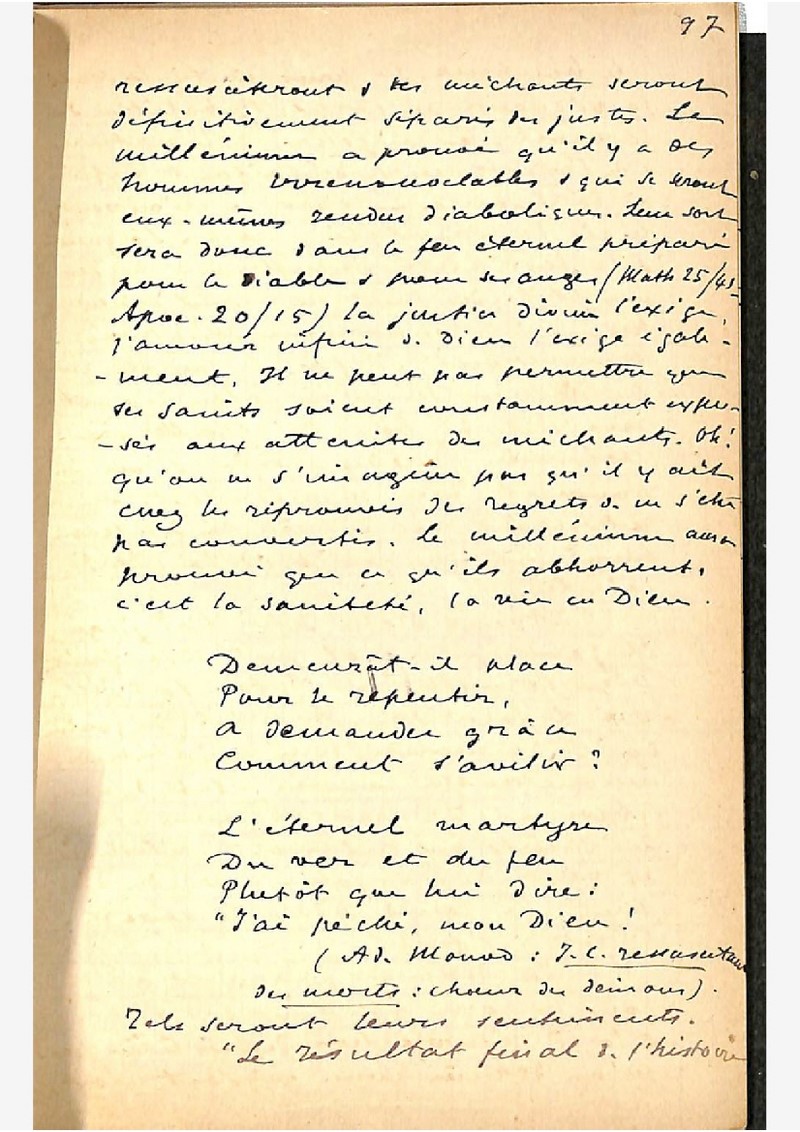 97
ressusciteront & les méchants seront
définitivement séparés des justes. Le
millénium a prouvé qu'il y a des
hommes & qui se seront
eux-mêmes rendus diaboliques. Leur sort
sera donc dans le feu éternel préparé
pour le diable & pour ses anges (Math 25/41-
Apoc. 20/15) La justice divine l'exige,
l'amour infini de Dieu l'exige égale-
-ment. Il ne peut pas permettre que
ses saints soient constamment expo-
-sés aux atteintes des méchants. Oh!
qu'on ne s'imagine pas qu'il y ait
chez les réprouvés des regrets de ne s'être
pas convertis. Le millénium aura
prouvé que ce qu'ils abhorrent,
c'est la sainteté, la vie en Dieu.
Demeurât-il place
Pour se repentir,
A demander grâce
Comment s'avilir?
L'éternel martyre
Du ver et du feu
Plutôt que lui dire:
"J'ai péché, mon Dieu!
(Ad. Monod: J.C. ressuscitant
des morts: chœur des démons).
Tels seront leurs sentiments.
"Le résultat final de l'histoire